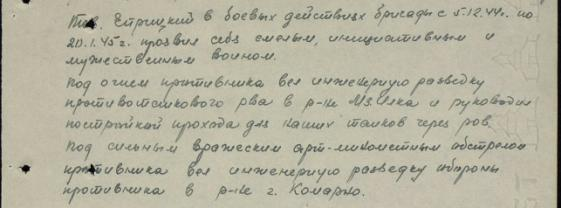 Тов. Етрицкий в боевых действиях бригады с 5.12.44г. по
20.1.45г. проявил себя смелым, инициативным и
мужественным воином.
Под огнем противника вел инженерную разведку
противотанкового рва в р-не и руководил
постройкой прохода для наших танков через ров.
Под сильным вражеским арт-минометным обстрелом
противника вел инженерную разведку обороны
противника в р-не г. Комарно.